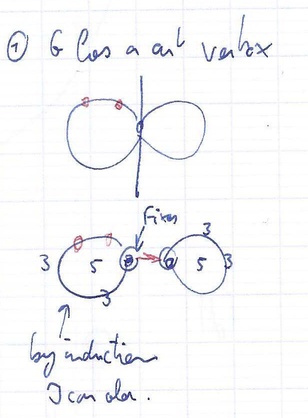 ① G has a cut vertex
Fixes
3
3 5 5 3
3
by induction
I can color.